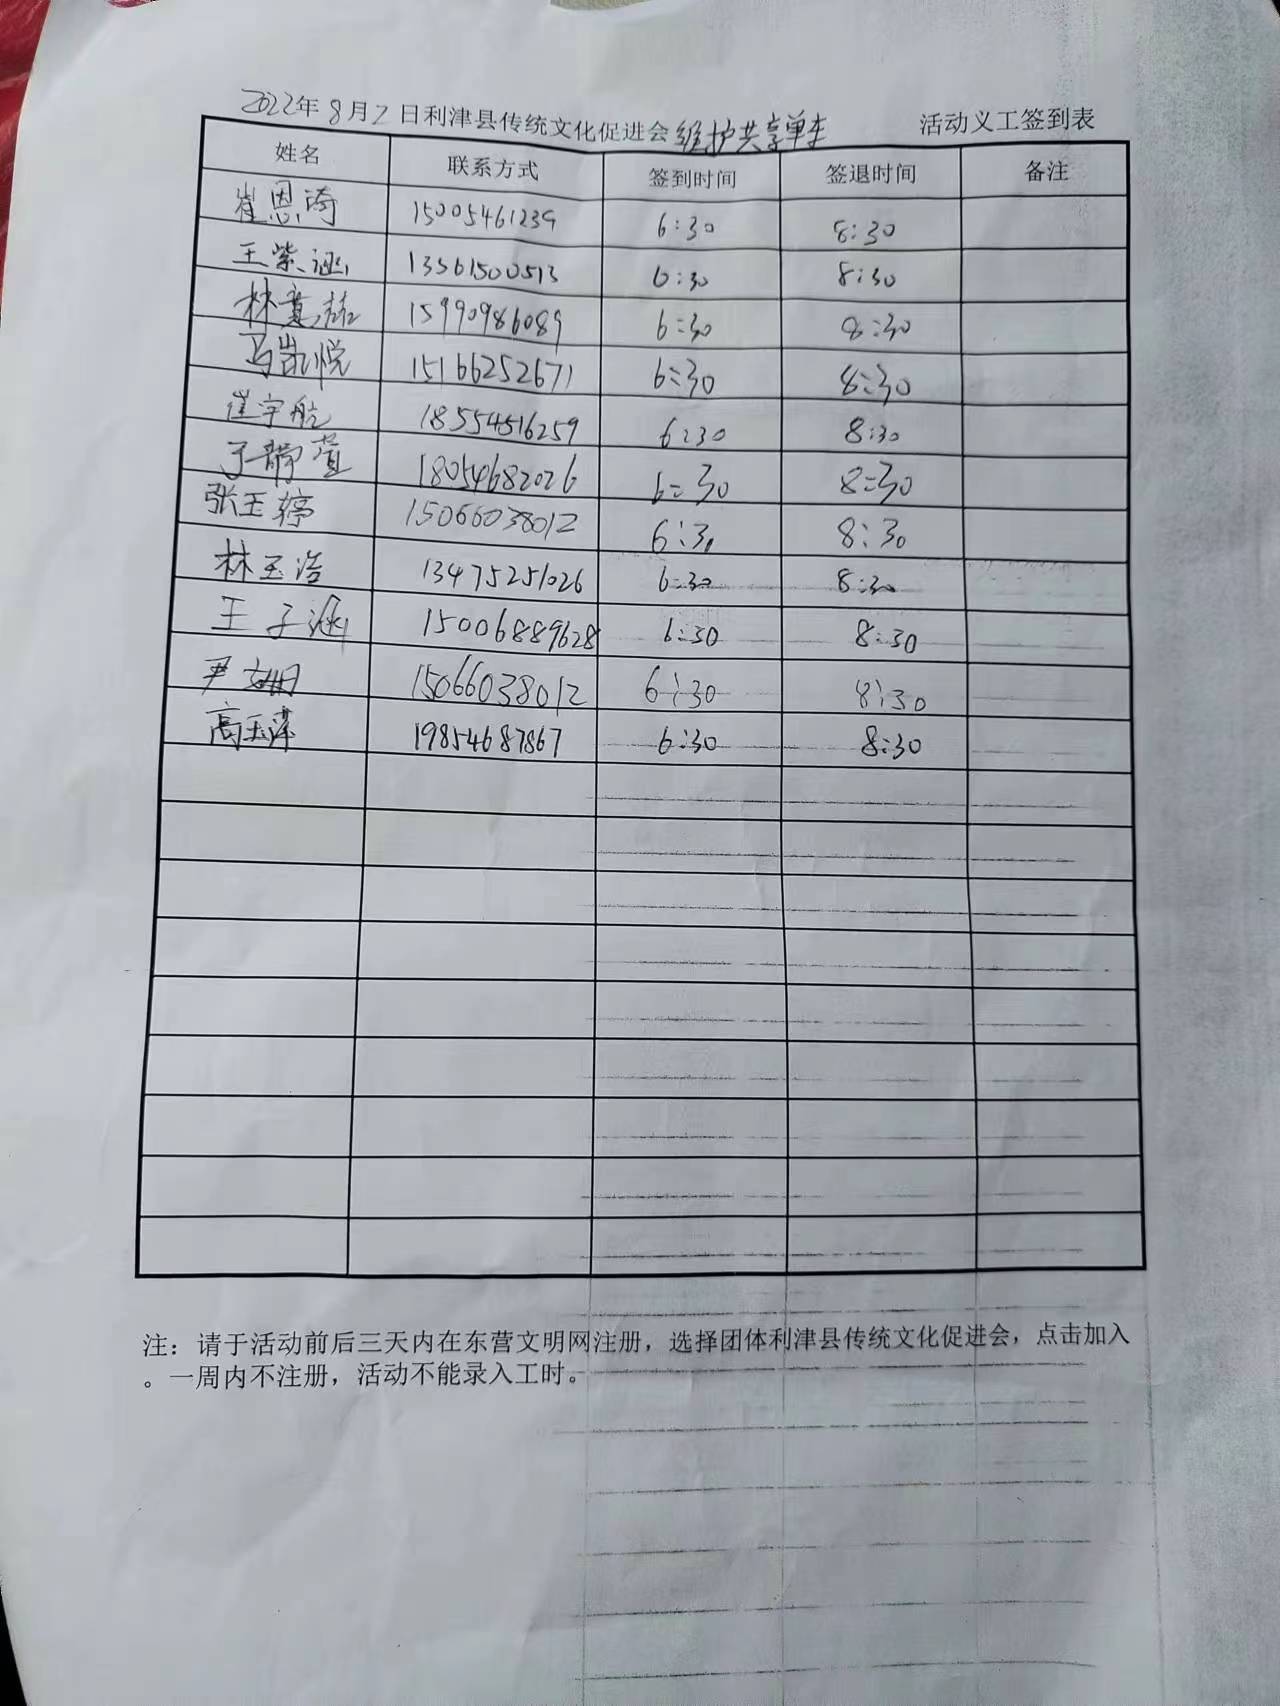 2022年8月2日利津县传统文化促进会维护共享单车 活动义工签到表
姓名 联系方式 签到时间 签退时间 备注
崔恩琦 15005461239 6:30 8:30
王紫涵 13561500513 6:30 8:30
林 15990986089 6:30 8:30
马凯悦 15166252671 6:30 8:30
崔宇航 18554516259 6:30 8:30
于静萱 18054682026 6:30 8:30
张玉婷 15066038012 6:30 8:30
林玉浩 13475251026 6:30 8:30
王子涵 15006889628 6:30 8:30
尹文 15066038012 6:30 8:30
高玉泽 19854687867 6:30 8:30
注：请于活动前后三天内在东营文明网注册，选择团体利津县传统文化促进会，点击加入
。一周内不注册，活动不能录入工时。